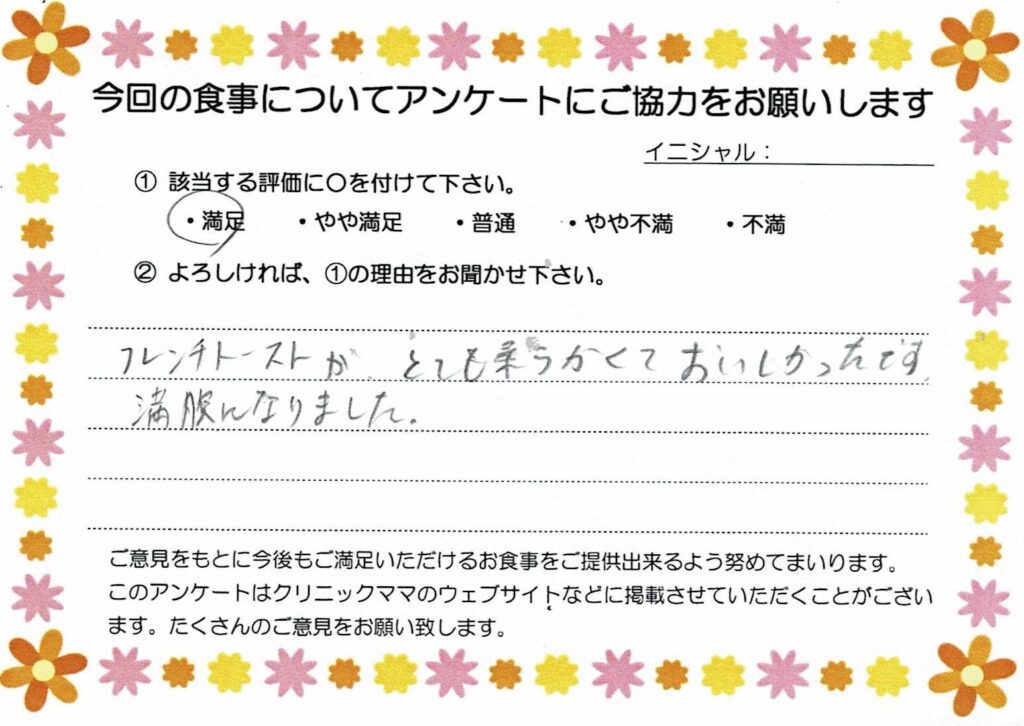 今回の食事についてアンケートにご協力をお願いします
イニシャル：
① 該当する評価に〇を付けて下さい。
・満足 ・やや満足 ・普通 ・やや不満 ・不満
② よろしければ、①の理由をお聞かせ下さい。
フレンチトーストが、とても柔らかくておいしかったです。
満腹になりました。
ご意見をもとに今後もご満足いただけるお食事をご提供出来るよう努めてまいります。
このアンケートはクリニックママのウェブサイトなどに掲載させていただくことがござい
ます。たくさんのご意見をお願い致します。